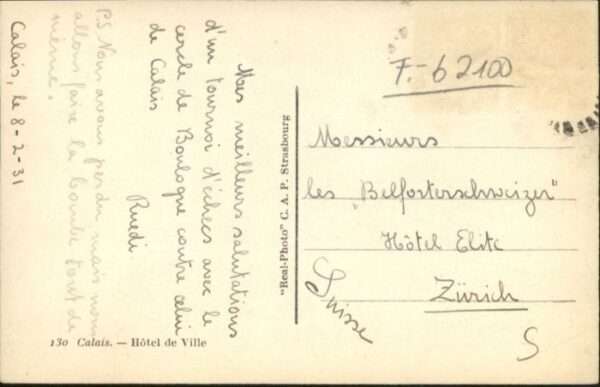 Calais, le 8-2-31
Mes meilleurs salutations
d'un tournoi d'échecs avec le
cercle de Boulogne contre celui
de Calais
Ruedi
P.S Nous avons perdu mais nous
allons faire la bombe tout de
même.
130 Calais. — Hôtel de Ville
"Real-Photo" C. A. P. Strasbourg
F.-62100
Messieurs
les "Belforterschweizer"
Hôtel Elite
Zürich
Suisse
S